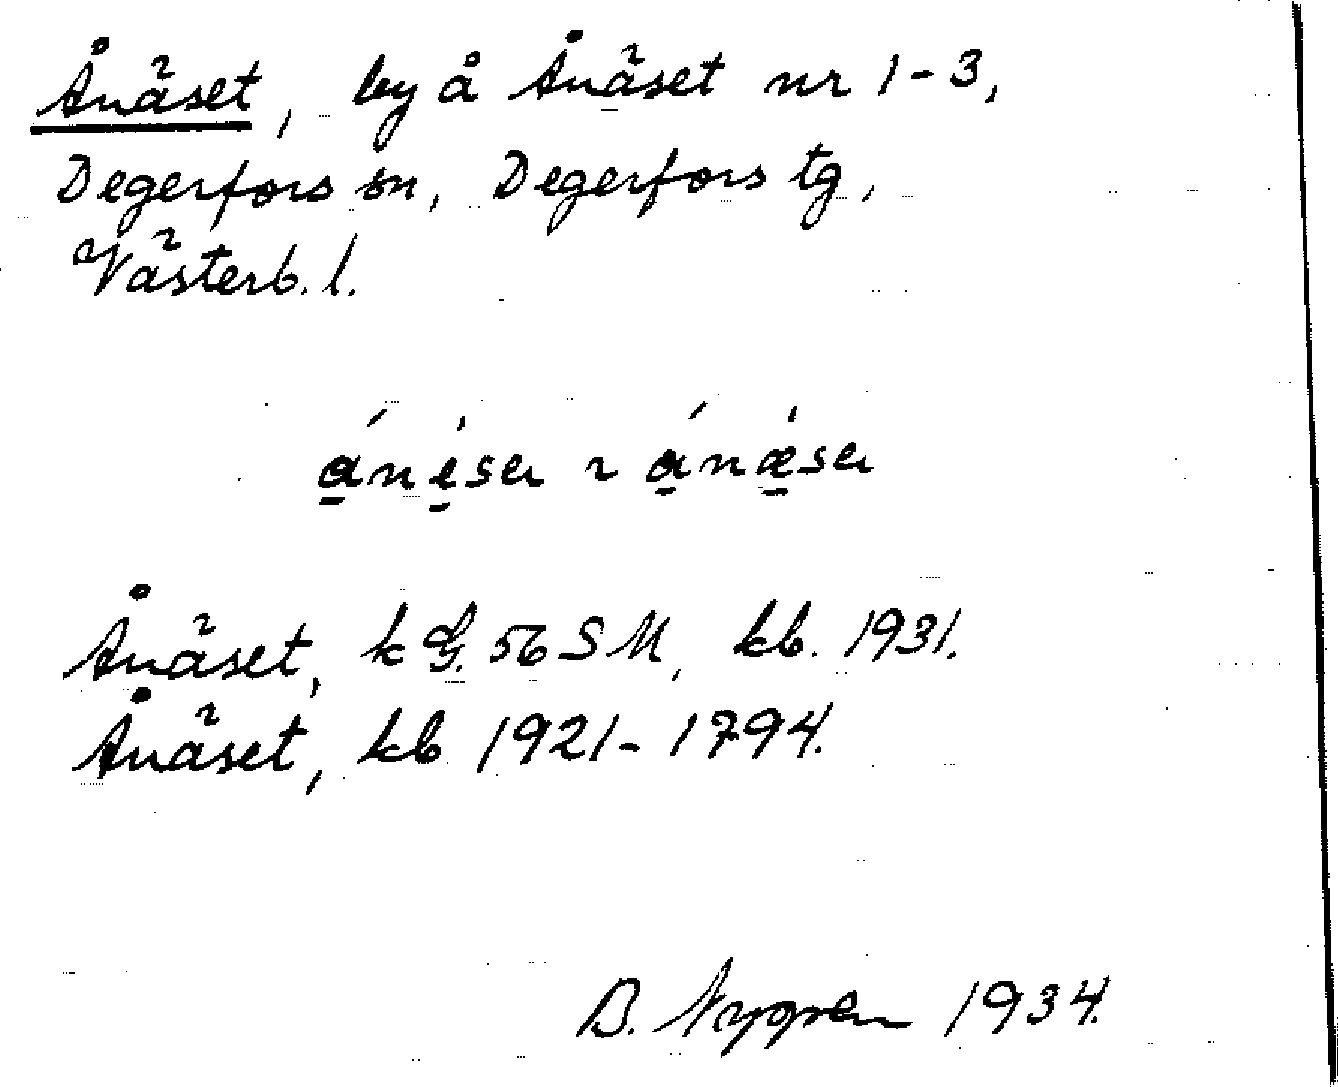 Ånäset, by å Ånäset nr 1-3,
Degerfors sn, Degerfors tg,
Västerb. l.
Ånäset, kG. 56 SM, kb. 1931.
Ånäset, kb 1921-1794.
B. Nygren 1934.